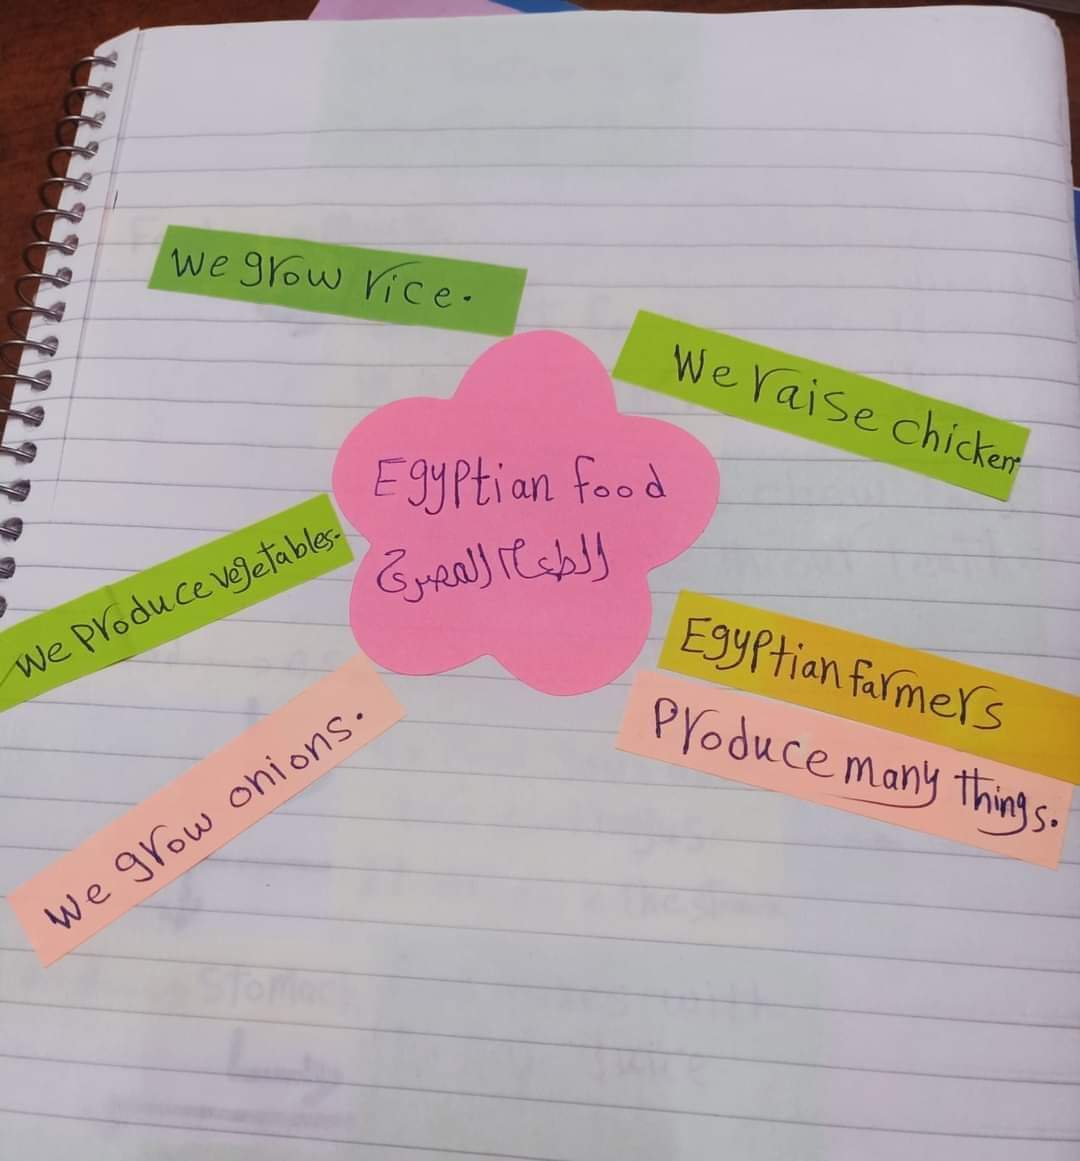 We grow rice.
We raise chicken.
Egyptian food
الطعام المصرى
We produce vegetables.
Egyptian farmers
Produce many things.
We grow onions.